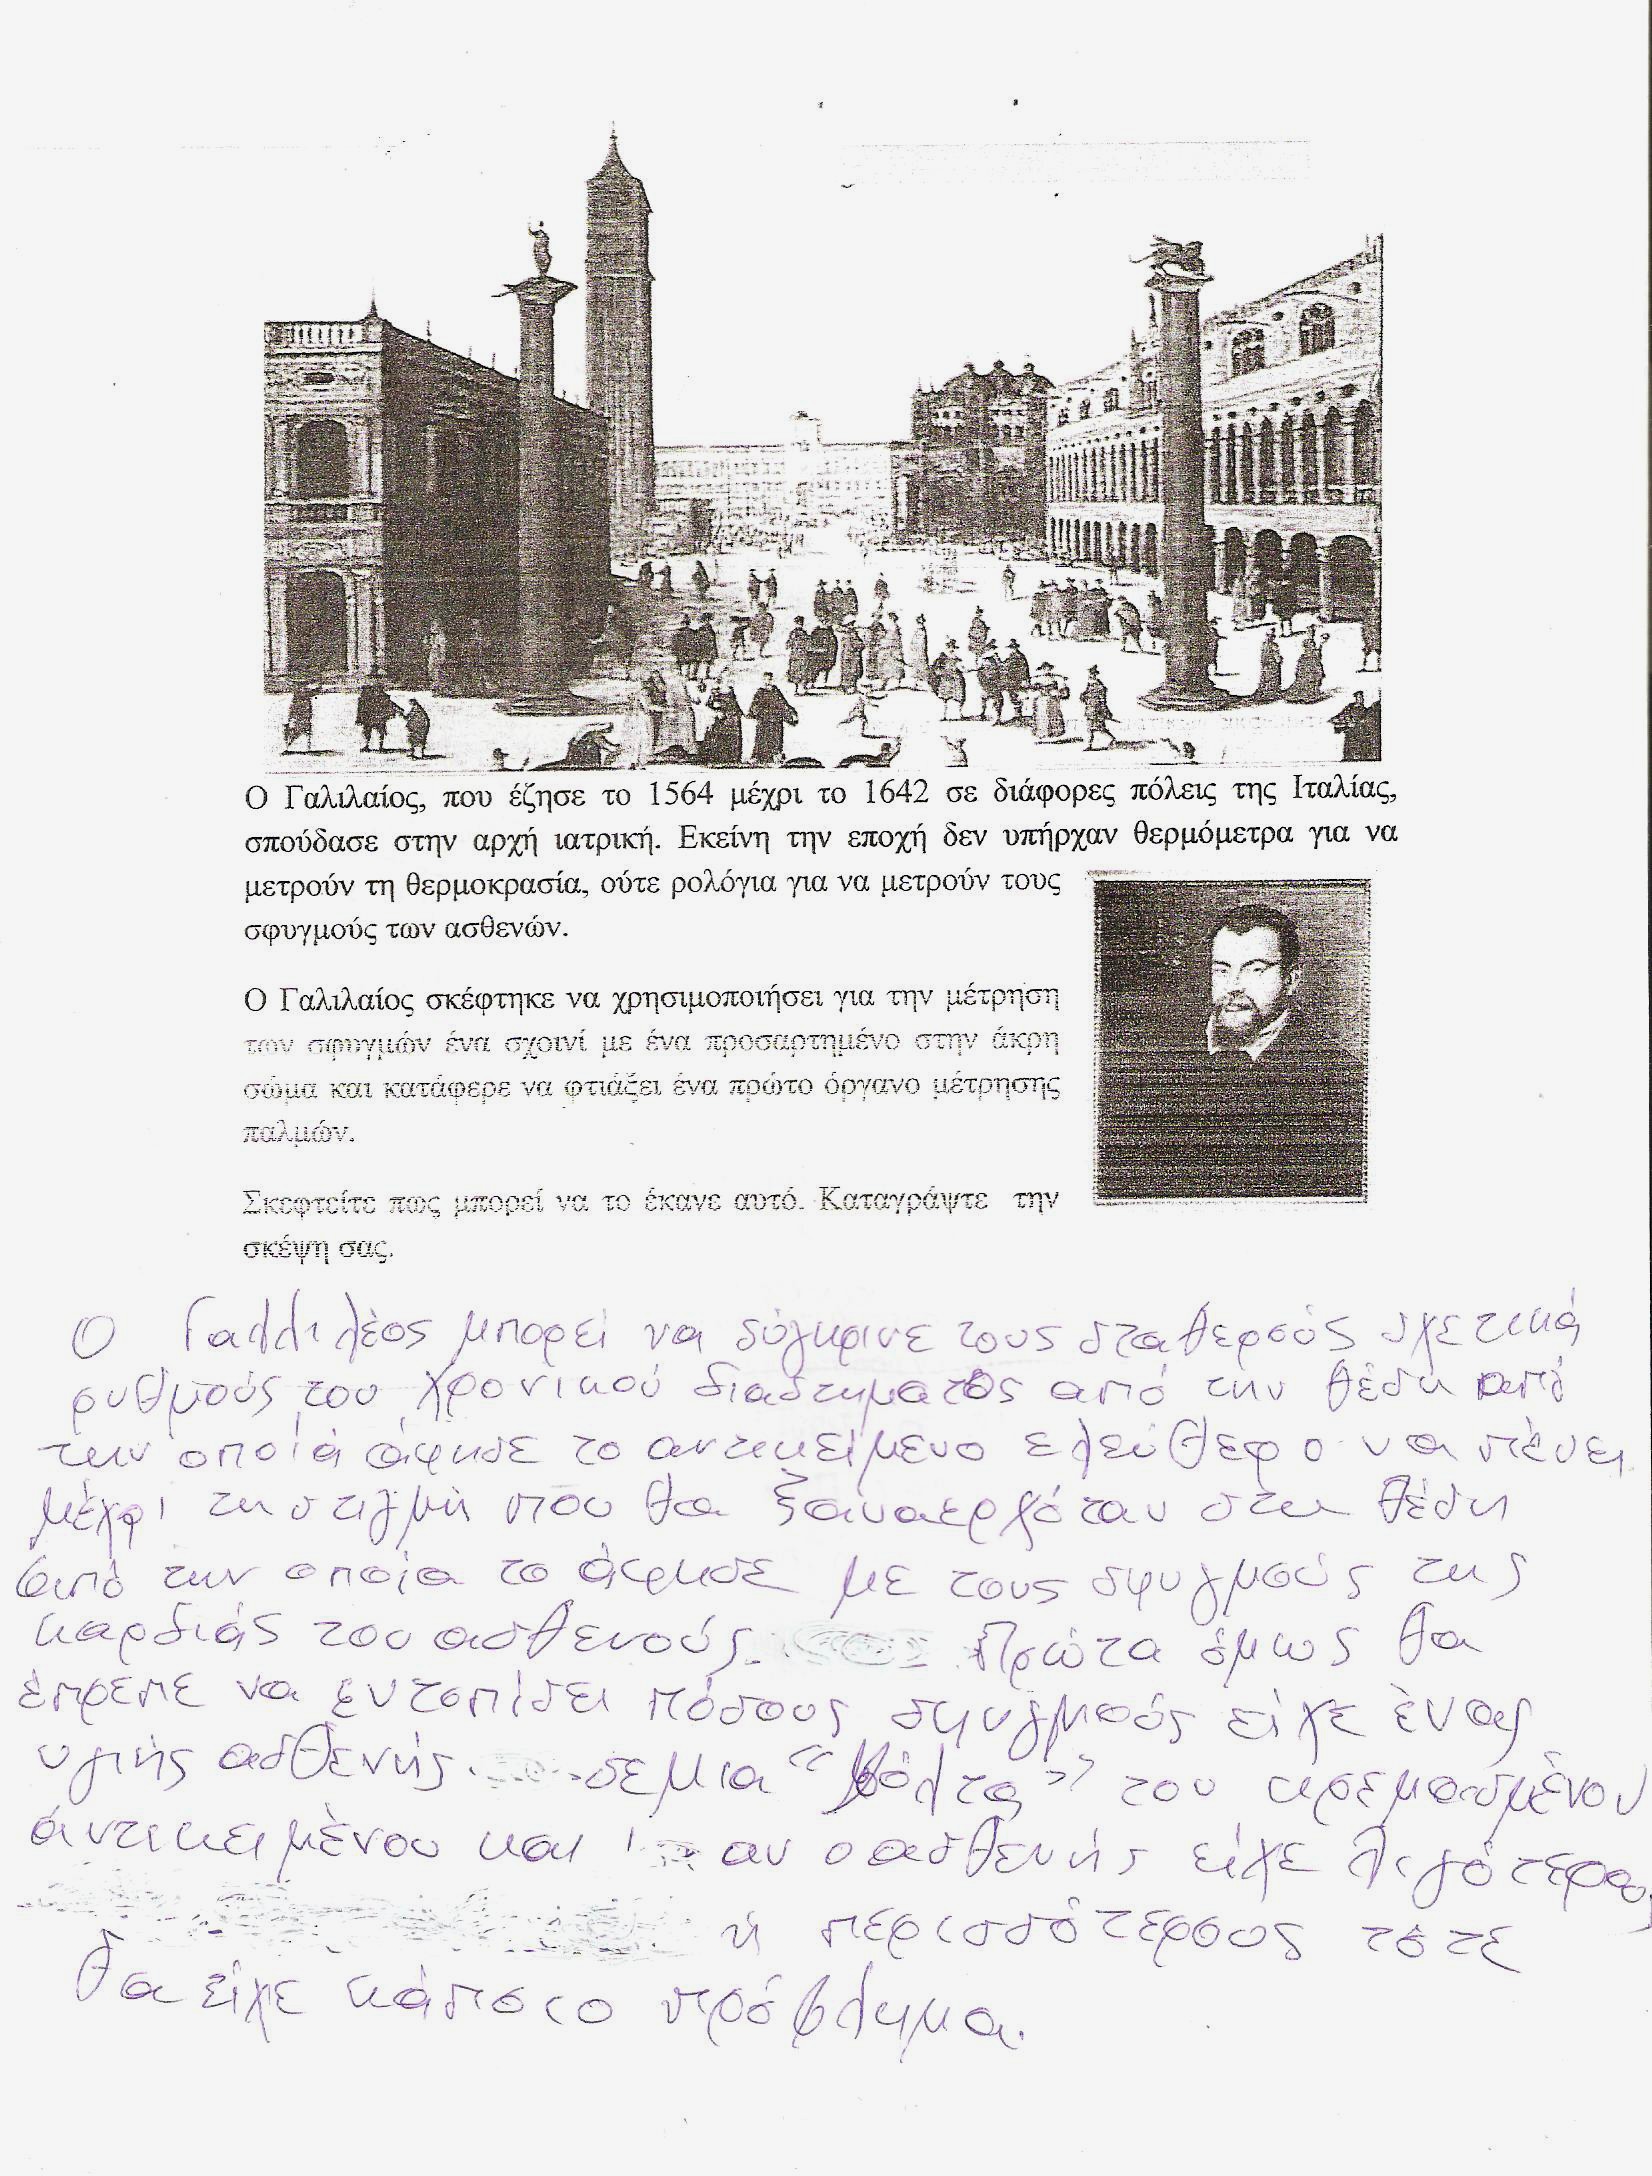 Ο Γαλιλαίος, που έζησε το 1564 μέχρι το 1642 σε διάφορες πόλεις της Ιταλίας,
σπούδασε στην αρχή ιατρική. Εκείνη την εποχή δεν υπήρχαν θερμόμετρα για να
μετρούν τη θερμοκρασία, ούτε ρολόγια για να μετρούν τους
σφυγμούς των ασθενών.
Ο Γαλιλαίος σκέφτηκε να χρησιμοποιήσει για την μέτρηση
των σφυγμών ένα σχοινί με ένα προσαρτημένο στην άκρη
σώμα και κατάφερε να φτιάξει ένα πρώτο όργανο μέτρησης
παλμών.
Σκεφτείτε πως μπορεί να το έκανε αυτό. Καταγράψτε την
σκέψη σας.
Ο Γαλλιλέος μπορεί να σύγκρινε τους σταθερούς σχετικά
ρυθμούς του χρονικού διαστήματος από την θέση από
την οποία άφησε το αντικείμενο ελεύθερο να πέσει
μέχρι τη στιγμή που θα ξαναερχόταν στη θέση
από την οποία το άφησε με τους σφυγμούς της
καρδιάς του ασθενούς. Πρώτα όμως θα
έπρεπε να εντοπίσει πόσους σφυγμούς είχε ένας
υγιής ασθενής σε μια "βόλτα" του κρεμασμένου
αντικειμένου και αν ο ασθενής είχε λιγότερους
ή περισσότερους τότε
θα είχε κάποιο πρόβλημα.